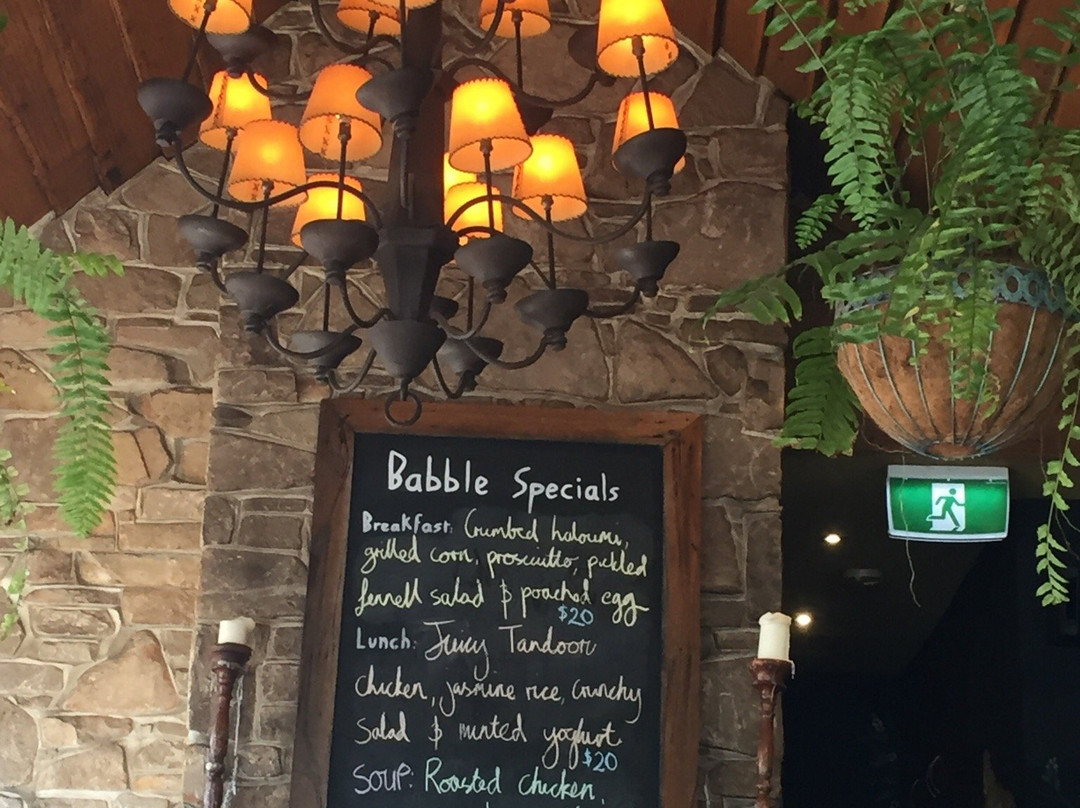 Babble Specials
Breakfast: Crumbed haloumi,
grilled corn, prosciutto, pickled
fennell salad & poached egg
$20
Lunch: Juicy Tandoori
chicken, jasmine rice, crunchy
salad & minted yoghurt
$20
SOUP: Roasted chicken,